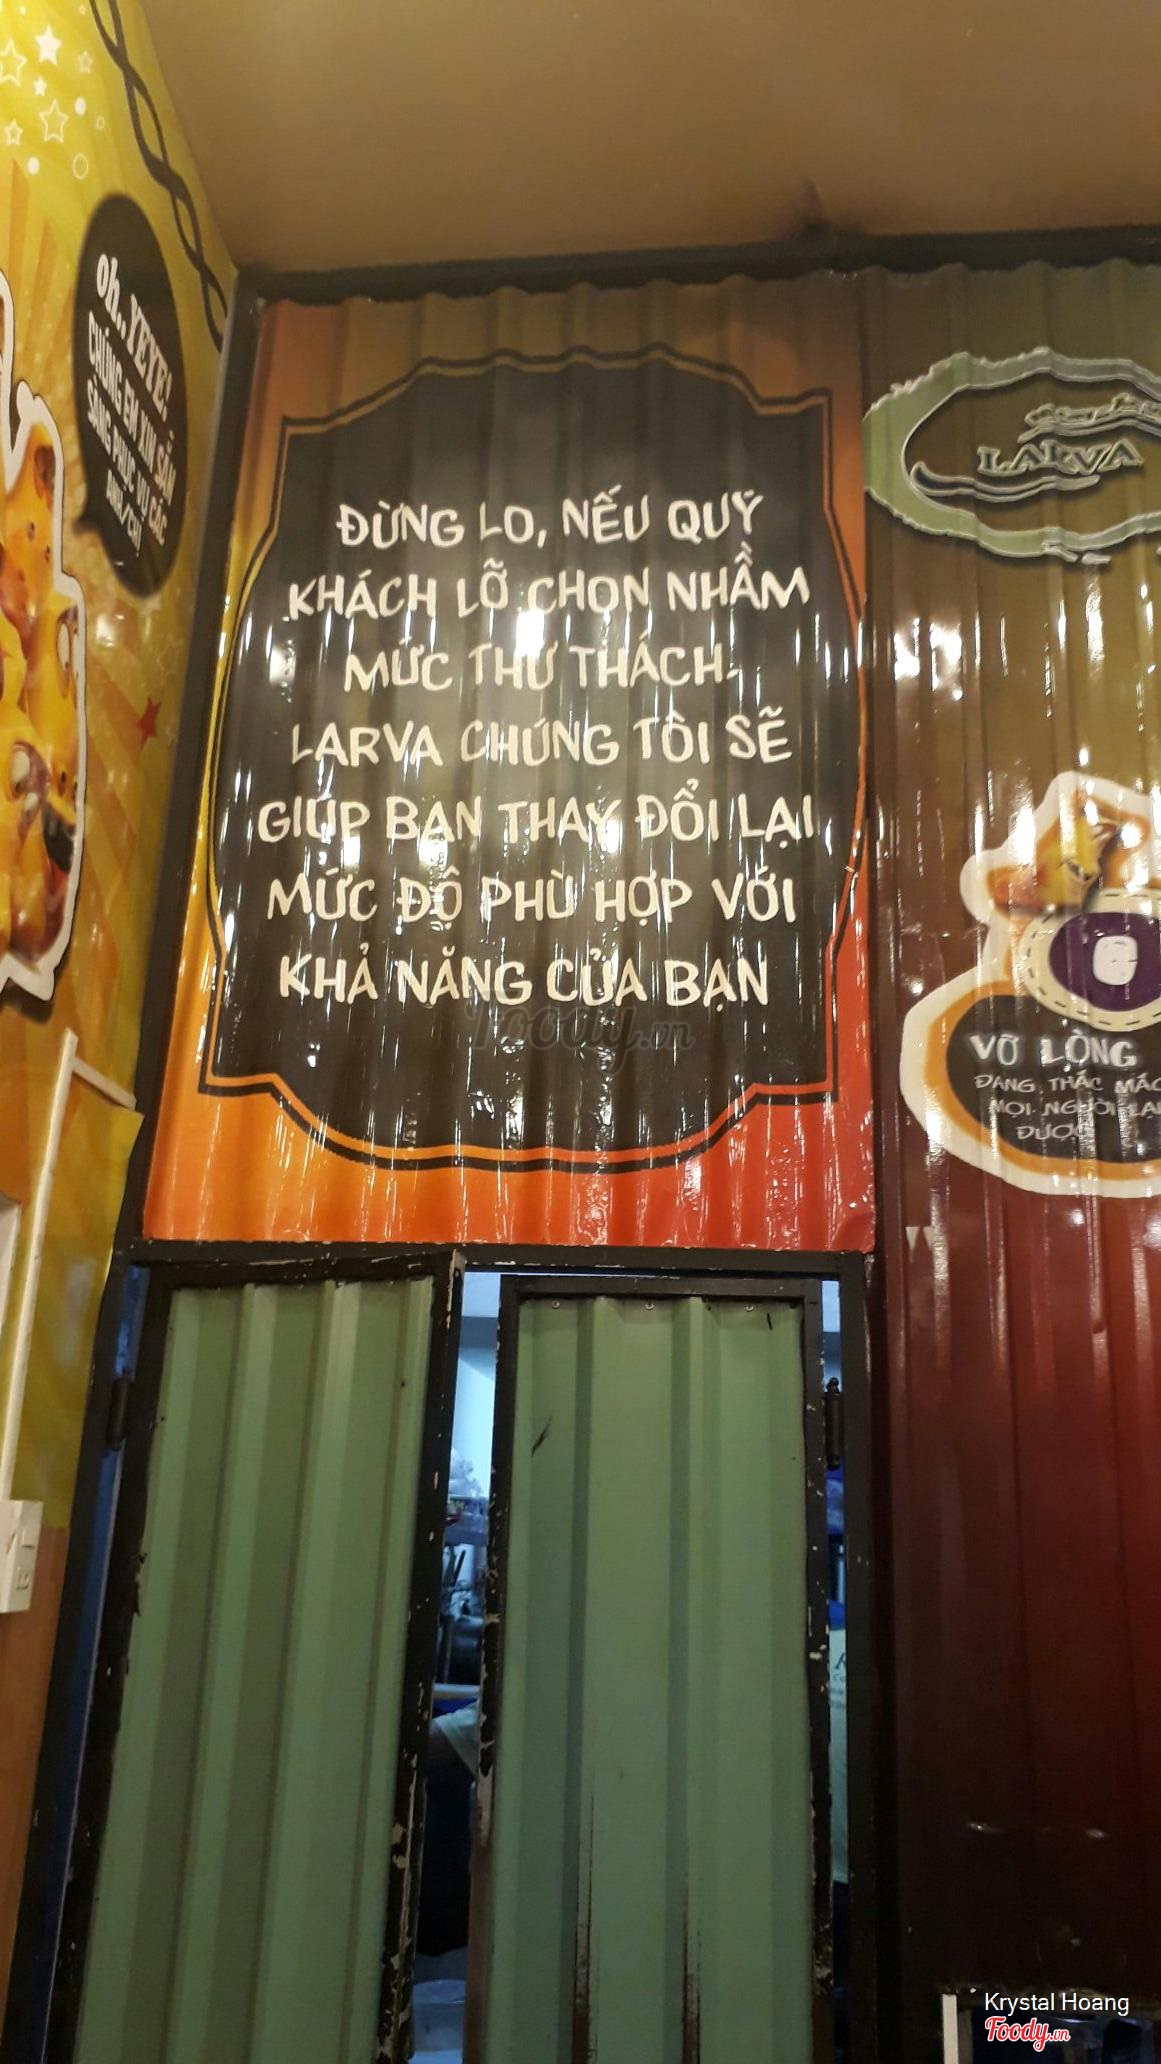 oh..YEYE!
CHÚNG EM XIN SẴN
SÀNG PHỤC VỤ CÁC
ANH/CHỊ
ĐỪNG LO, NẾU QUÝ
KHÁCH LỠ CHỌN NHẦM
MỨC THỬ THÁCH.
LARVA CHÚNG TÔI SẼ
GIÚP BẠN THAY ĐỔI LẠI
MỨC ĐỘ PHÙ HỢP VỚI
KHẢ NĂNG CỦA BẠN
Foody.vn
LARVA
0
VỠ LÒNG
ĐANG THẮC MẮC
MỌI NGƯỜI
ĐƯỢC
Krystal Hoang
Foody.vn